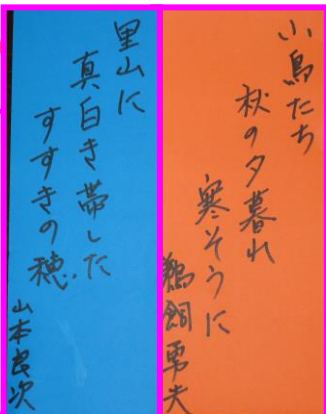 小鳥たち
秋の夕暮れ
寒そうに
鵜飼勇夫
里山に
真白き帯した
すすきの穂
山本良次